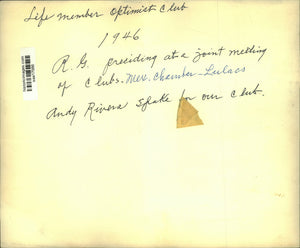 Life member Optimist Club
1946
R.G. presiding at a joint meeting
of Clubs. Mex. Chamber - Lulacs
Andy Rivera spoke for our Club.